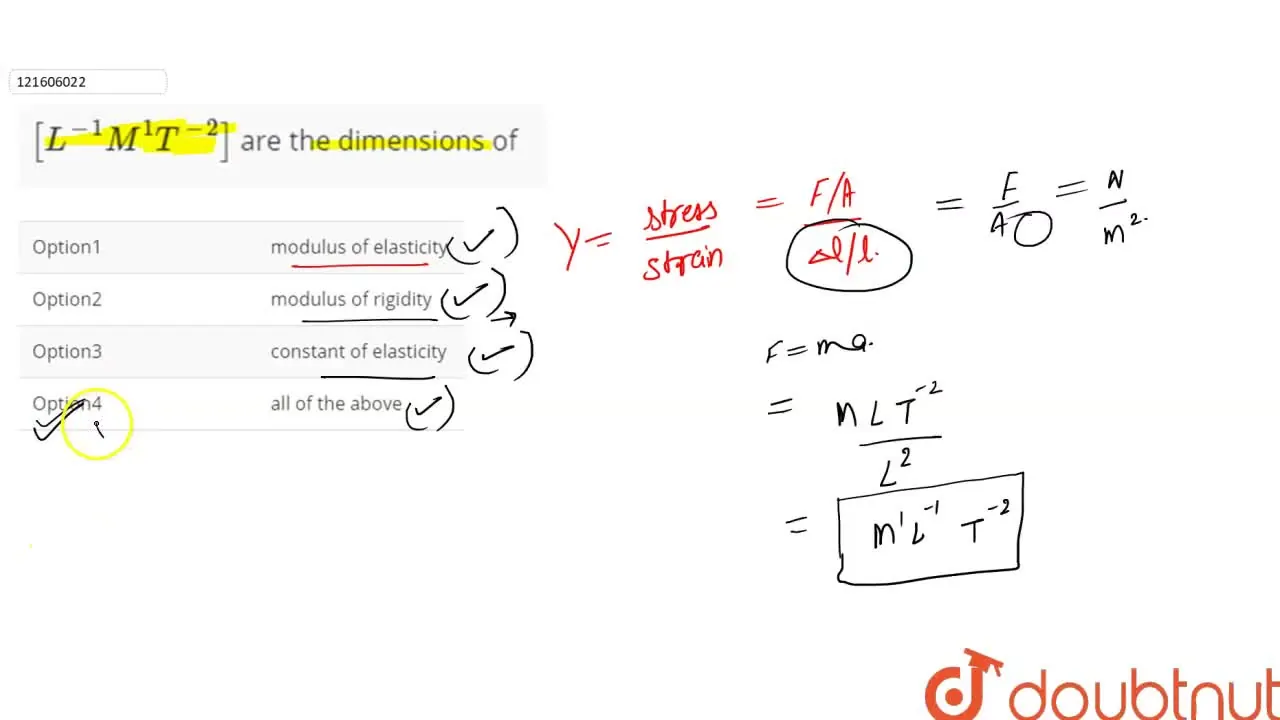 121606022
[L⁻¹M¹T⁻²] are the dimensions of
Option1 modulus of elasticity (✓)
Option2 modulus of rigidity (✓)
Option3 constant of elasticity (✓)
Option4 all of the above (✓)
Y = stress/strain = F/A / Δl/l. = F/A = N/m².
F = ma.
= M L T⁻² / L²
= M¹ L⁻¹ T⁻²
doubtnut